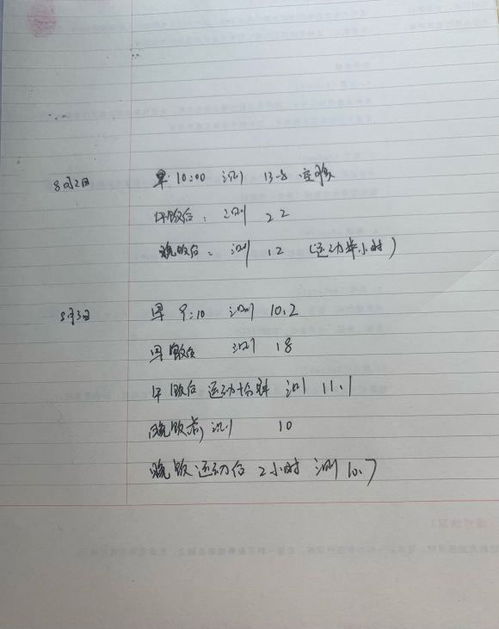 8月2日 早10:00 测 13.8 空腹
午饭后: 测 22
晚饭后: 测 12 (运动半小时)
8月3日 早 9:10 测 10.2
早饭后 测 18
午饭后 运动十分钟 测 11.1
晚饭前 测 10
晚饭运动后 2小时 测 10.7